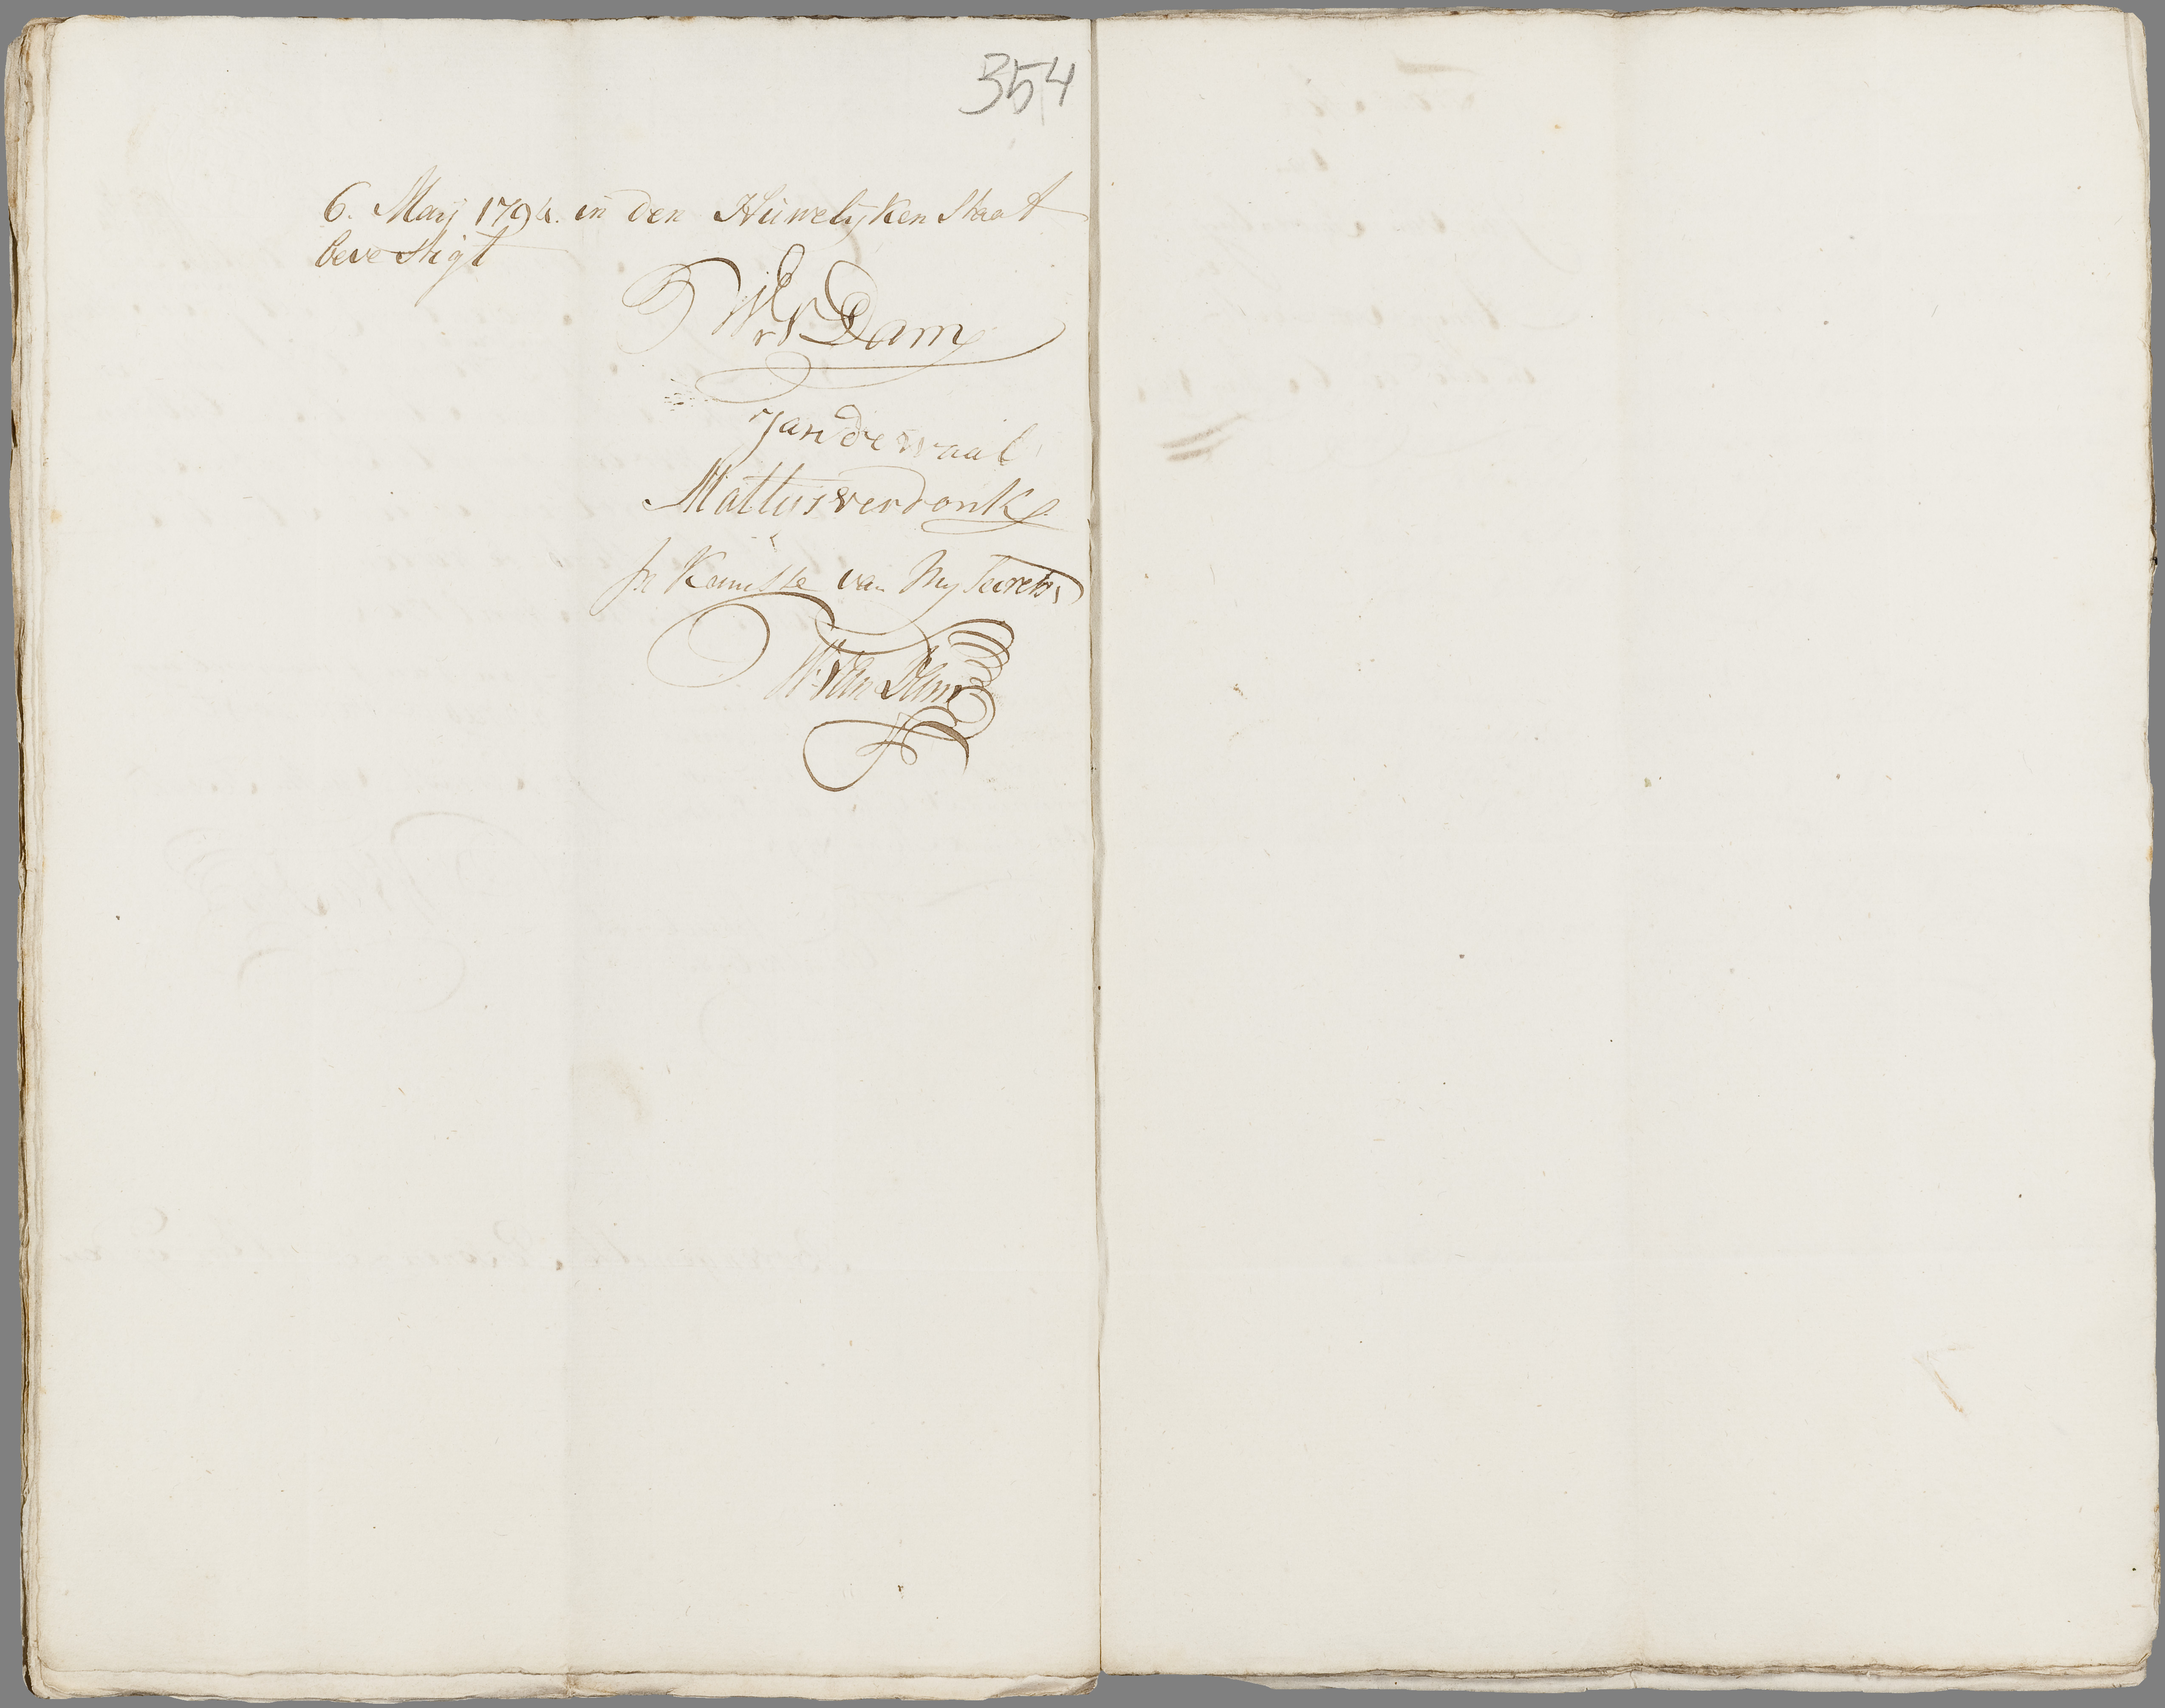 354
6. Maij 1794. in den Huwelyken Staat
bevestigt
Wr V Dam
Jan de waal
Mattijs verdonk
In Kennisse van My Secrets
W: Van Dam